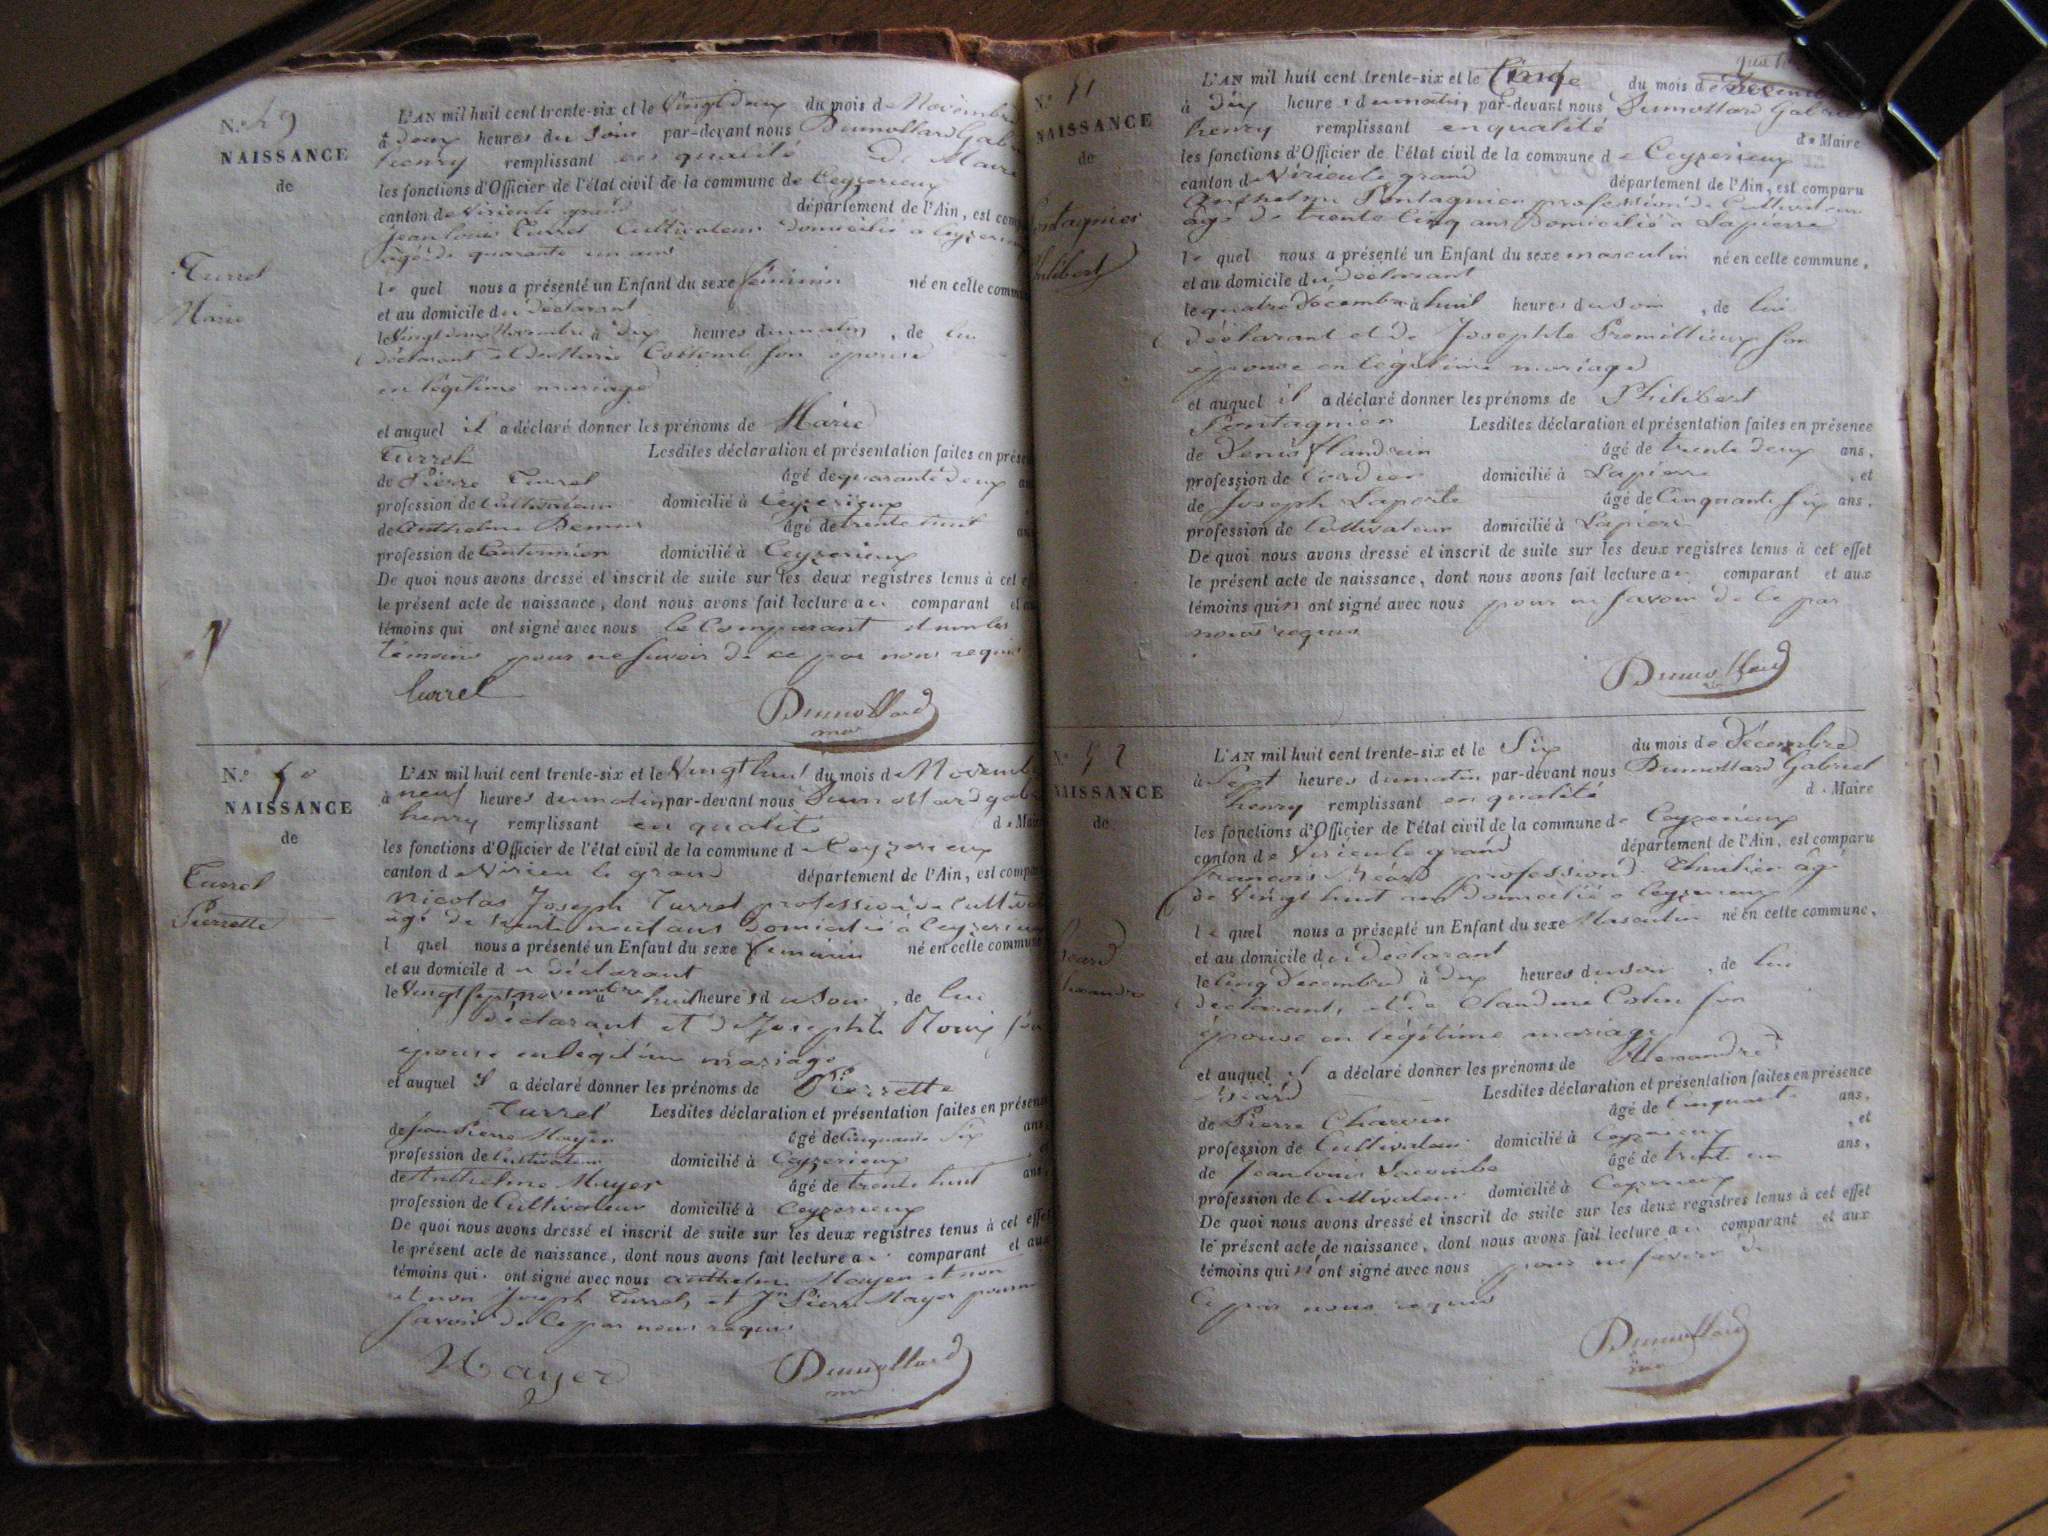 N.º 49
NAISSANCE
de
Turrel
Marie
L'AN mil huit cent trente-six et le Vingt deux du mois de Novembre
à deux heures du soir par-devant nous Dumollard
henry remplissant en qualité de Maire
les fonctions d'Officier de l'état civil de la commune de Ceyzerieux
canton de Virieu le grand département de l'Ain, est
Jean louis Turrel Cultivateur domicilié a
agé de quarante un ans
le quel nous a présenté un Enfant du sexe féminin né en cette
et au domicile du déclarant
le Vingt deux Novembre à dix heures du matin, de lui
déclarant et de Marie Collomb son epouse
en légitime mariage
et auquel il a déclaré donner les prénoms de Marie
Turrel Lesdites déclaration et présentation faites en
de Pierre Turrel âgé de quarante deux
profession de Cultivateur domicilié à Ceyzerieux
de Anthelme âgé de trente huit
profession de Cantonnier domicilié à Ceyzerieux
De quoi nous avons dressé et inscrit de suite sur les deux registres tenus à cet
le présent acte de naissance, dont nous avons fait lecture au comparant et
témoins qui ont signé avec nous le Comparant et non les
témoins pour ne savoir de ce par nous requis
turrel Dumollard
N.º 50
NAISSANCE
de
Turrel
Pierrette
L'AN mil huit cent trente-six et le Vingt huit du mois de
à neuf heures du matin par-devant nous Dumollard
henry remplissant en qualité de
les fonctions d'Officier de l'état civil de la commune de Ceyzerieux
canton de Virieu le grand département de l'Ain, est
Nicolas Joseph Turrel profession de
agé de trente neuf ans Domicilié à
l quel nous a présenté un Enfant du sexe féminin né en cette commune
et au domicile du déclarant
le Vingt sept novembre à huit heures du soir, de lui
déclarant et de Josephte
epouse en légitime mariage
et auquel il a déclaré donner les prénoms de Pierrette
Turrel Lesdites déclaration et présentation faites en
de Jean Pierre Mayer âgé de Cinquante Six ans
profession de Cultivateur domicilié à Ceyzerieux
de Anthelme Mayer âgé de trente huit ans
profession de Cultivateur domicilié à Ceyzerieux
De quoi nous avons dressé et inscrit de suite sur les deux registres tenus à cet effet
le présent acte de naissance, dont nous avons fait lecture au comparant et aux
témoins qui ont signé avec nous anthelme Mayer et non
et non Joseph Turrel, et Jn Pierre Mayer pour ne
savoir de ce par nous requis
Mayer Dumollard
N.º 51
NAISSANCE
de
L'AN mil huit cent trente-six et le Cinq du mois de
à dix heures du matin, par-devant nous Dumollard
henry remplissant en qualité de Maire
les fonctions d'Officier de l'état civil de la commune de Ceyzerieux
canton de Virieu le grand département de l'Ain, est comparu
Anthelme Pontagnier profession de Cultivateur
agé de trente Cinq ans Domicilié à Lapierre
le quel nous a présenté un Enfant du sexe masculin né en cette commune,
et au domicile du déclarant
le quatre Décembre à huit heures du soir, de lui
déclarant et de Josephte Premillieux son
epouse en légitime mariage
et auquel il a déclaré donner les prénoms de Philibert
Pontagnier Lesdites déclaration et présentation faites en présence
de Denis Flandrin âgé de trente deux ans,
profession de domicilié à Lapierre, et
de Joseph Laporte âgé de Cinquante six ans.
profession de Cultivateur domicilié à Lapierre
De quoi nous avons dressé et inscrit de suite sur les deux registres tenus à cet effet
le présent acte de naissance, dont nous avons fait lecture au comparant et aux
témoins qui n'ont signé avec nous pour ne savoir de ce par
nous requis
Dumollard
N.º 52
NAISSANCE
de
L'AN mil huit cent trente-six et le Six du mois de Décembre
à Sept heures du matin par-devant nous Dumollard Gabriel
henry remplissant en qualité de Maire
les fonctions d'Officier de l'état civil de la commune de Ceyzerieux
canton de Virieu le grand département de l'Ain, est comparu
françois profession de agé
de Vingt huit ans Domicilié à Ceyzerieux
le quel nous a présenté un Enfant du sexe Masculin né en cette commune,
et au domicile du déclarant
le Cinq Décembre à dix heures du soir, de lui
déclarant, et de Claudine son
épouse en légitime mariage
et auquel il a déclaré donner les prénoms de Alexandre
Lesdites déclaration et présentation faites en présence
de Pierre Charvin âgé de Cinquante ans,
profession de Cultivateur domicilié à Ceyzerieux, et
de Jean louis âgé de trente un ans,
profession de Cultivateur domicilié à Ceyzerieux
De quoi nous avons dressé et inscrit de suite sur les deux registres tenus à cet effet
le présent acte de naissance, dont nous avons fait lecture au comparant et aux
témoins qui n'ont signé avec nous pour ne savoir de
ce par nous requis
Dumollard